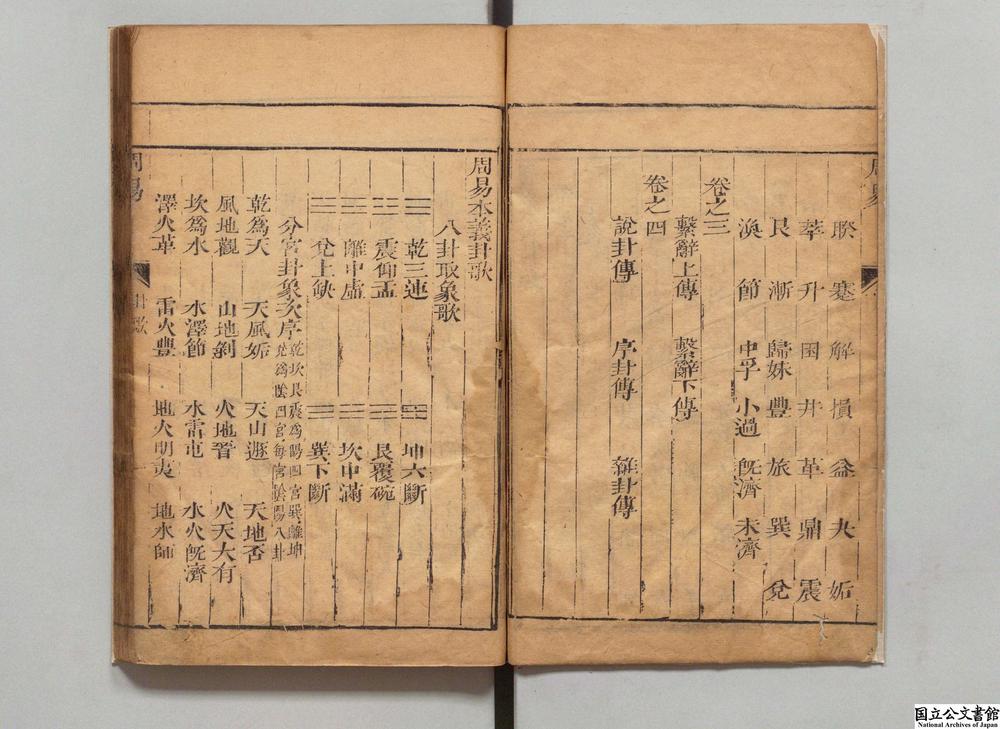 周易
睽 蹇 解 損 益 夬 姤
萃 升 困 井 革 鼎 震
艮 漸 歸妹 豐 旅 巽 兌
渙 節 中孚 小過 旣濟 未濟
卷之三
繫辭上傳 繫辭下傳
卷之四
說卦傳 序卦傳 雜卦傳
周易本義卦歌
八卦取象歌
☰ 乾三連 ☷ 坤六斷
☳ 震仰盂 ☶ 艮覆碗
☲ 離中虛 ☵ 坎中滿
☱ 兌上缺 ☴ 巽下斷
分宮卦象次序 乾坎艮震爲陽四宮巽離坤兌爲陰四宮每宮陰陽八卦
乾爲天 天風姤 天山遯 天地否
風地觀 山地剝 火地晉 火天大有
坎爲水 水澤節 水雷屯 水火旣濟
澤火革 雷火豐 地火明夷 地水師
周易 卦歌
国立公文書館
National Archives of Japan